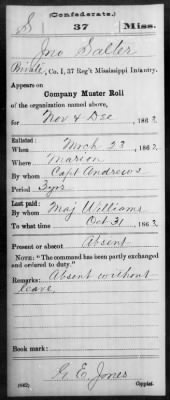 (Confederate.)
S 37 Miss.
Jno Salter
Private, Co. I, 37 Reg't Mississippi Infantry.
Appears on
Company Muster Roll
of the organization named above,
for Nov & Dec, 1863.
Enlisted:
When Mrch 23, 1863.
Where Marion
By whom Capt Andrews
Period 3 yrs
Last paid:
By whom Maj Williams
To what time Oct 31, 1863.
Present or absent Absent
NOTE: "The command has been partly exchanged
and ordered to duty."
Remarks: Absent without
leave
Book mark:
G. E. Jones
(642) Copyist.